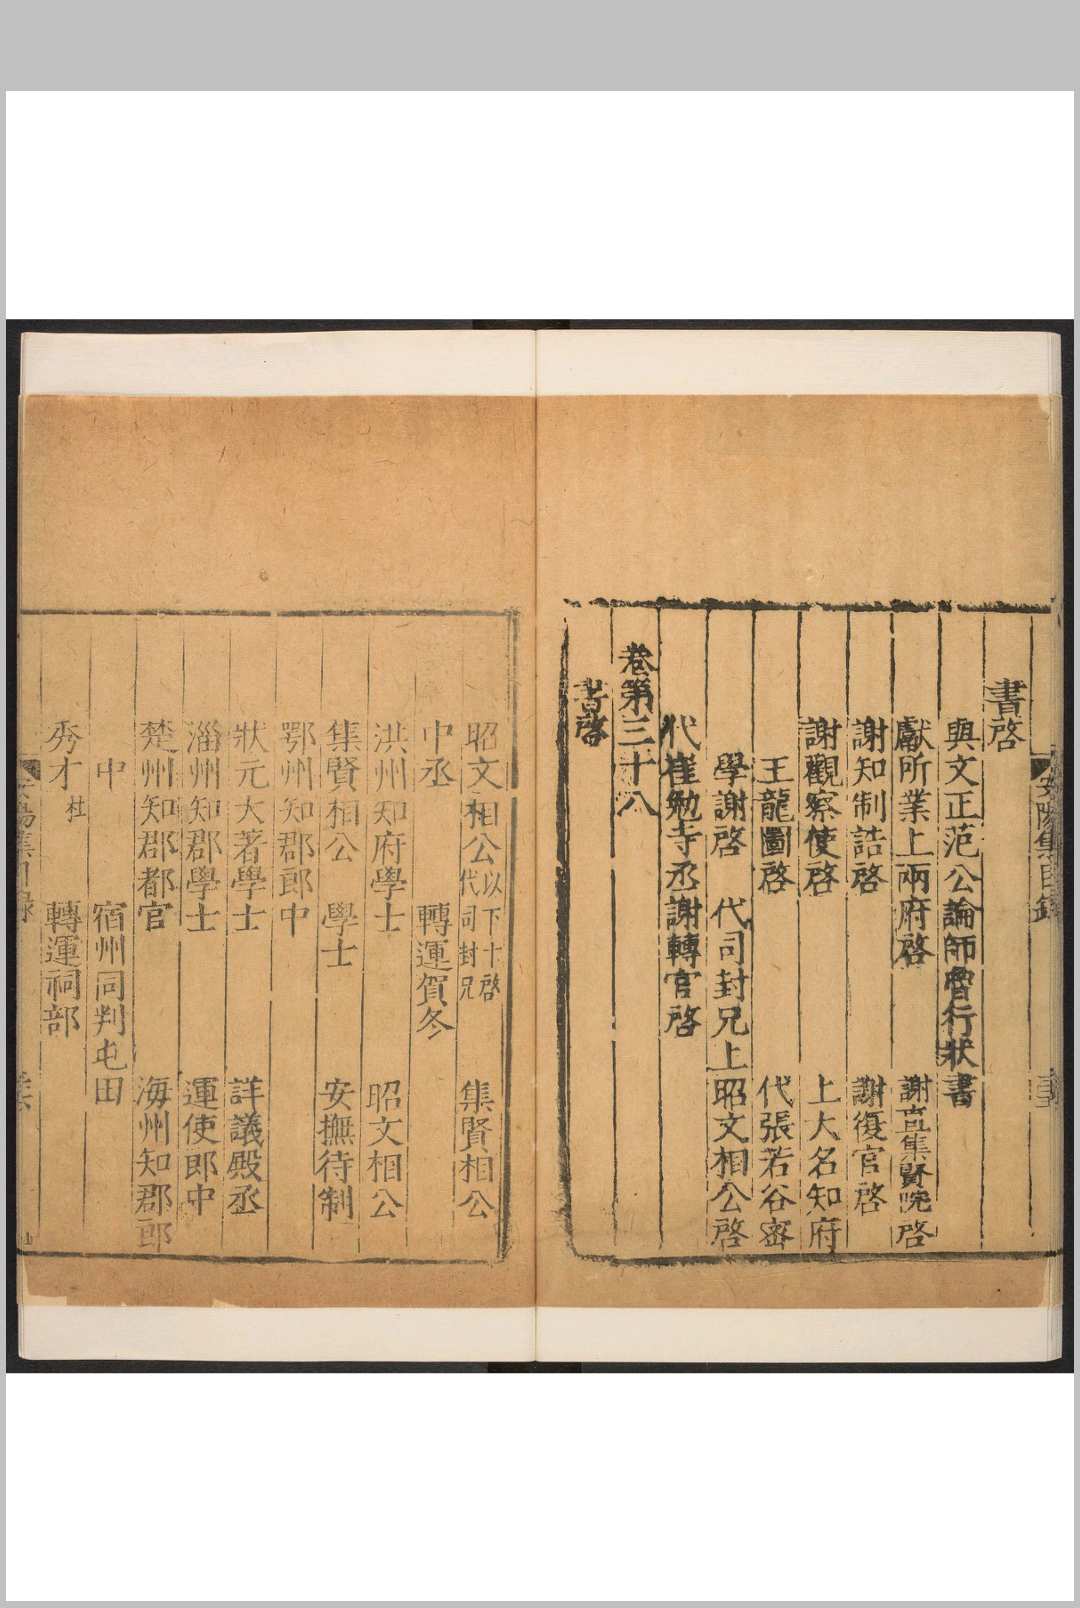 安陽集目錄
書啓
與文正范公論師魯行狀書
獻所業上兩府啓 謝直集賢院啓
謝知制誥啓 謝復官啓
謝觀察使啓 上大名知府
王龍圖啓 代張若谷密
學謝啓 代司封兄上昭文相公啓
代崔勉寺丞謝轉官啓
卷第三十八
書啓
昭文相公以下十啓代司封兄 集賢相公
中丞 轉運賀冬
洪州知府學士 昭文相公
集賢相公 學士 安撫待制
鄂州知郡郎中
狀元大著學士 詳議殿丞
淄州知郡學士 運使郎中
楚州知郡都官 海州知郡郎
中 宿州同判屯田
秀才杜 轉運祠部